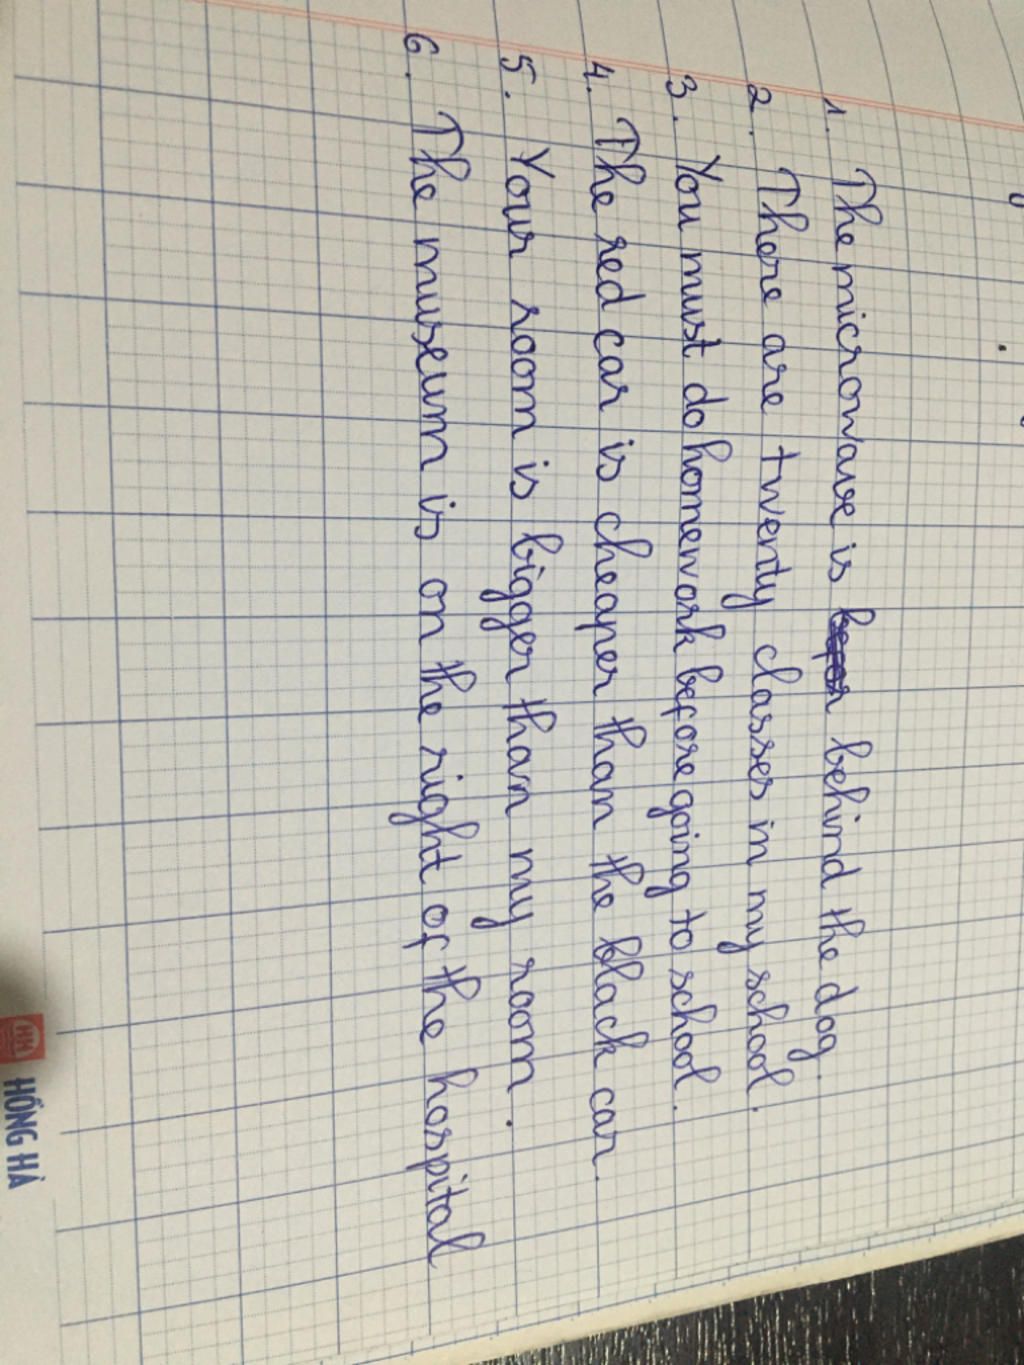 1. The microwave is behind the dog.
2. There are twenty classes in my school.
3. You must do homework before going to school.
4. The red car is cheaper than the black car.
5. Your room is bigger than my room.
6. The museum is on the right of the hospital
HỒNG HÀ